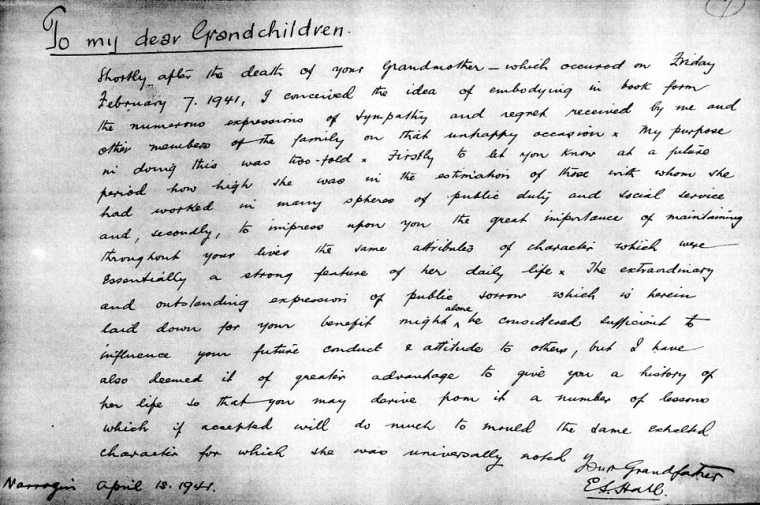 1
To my dear Grandchildren.
Shortly after the death of your Grandmother — which occured on Friday
February 7. 1941, I conceived the idea of embodying in book form
the numerous expressions of sympathy and regret received by me and
other members of the family on that unhappy occasion x My purpose
in doing this was two-fold x Firstly to let you know at a future
period how high she was in the estimation of those with whom she
had worked in many spheres of public duty and social service
and, secondly, to impress upon you the great importance of maintaining
throughout your lives the same attributes of character which were
essentially a strong feature of her daily life x The extraordinary
and outstanding expression of public sorrow which is herein
laid down for your benefit might alone be considered sufficient to
influence your future conduct & attitude to others, but I have
also deemed it of greater advantage to give you a history of
her life so that you may derive from it a number of lessons
which if accepted will do much to mould the same exalted
character for which she was universally noted
Your Grandfather
Narrogin April 18. 1941.
E.S. Hall.